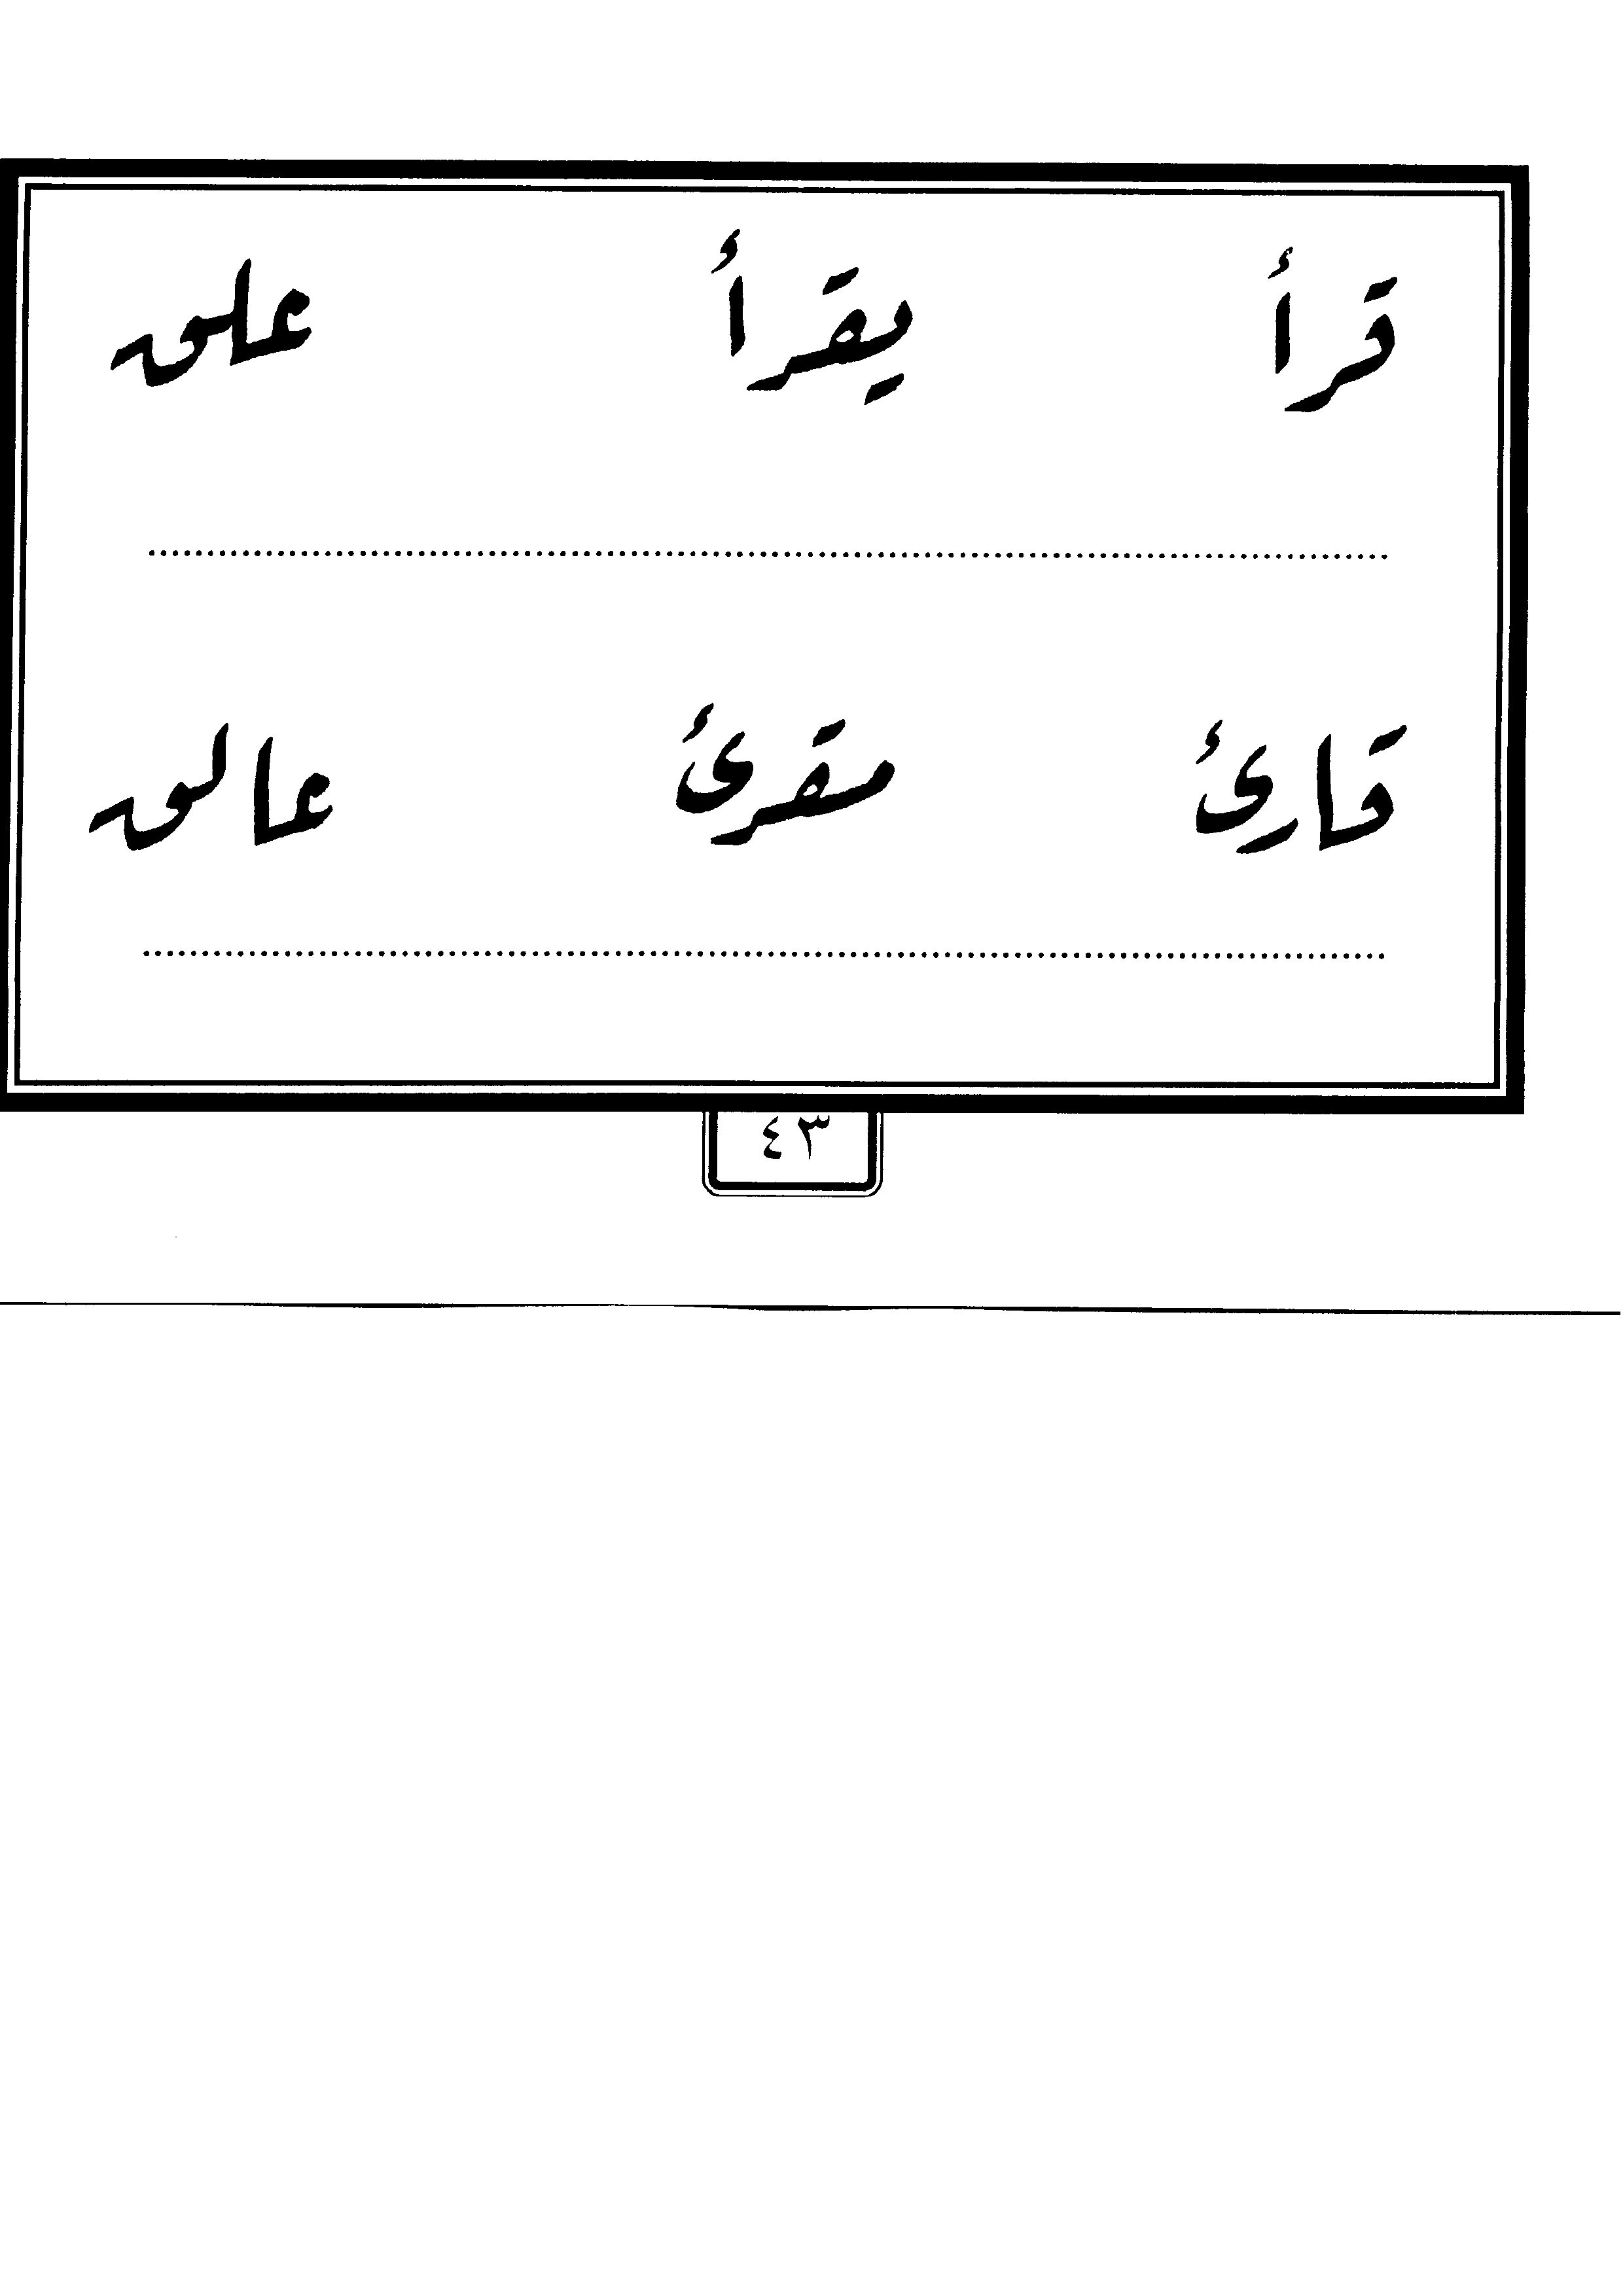 قرأ يقرأ علق
قارئ مقرئ عالق
٤٣